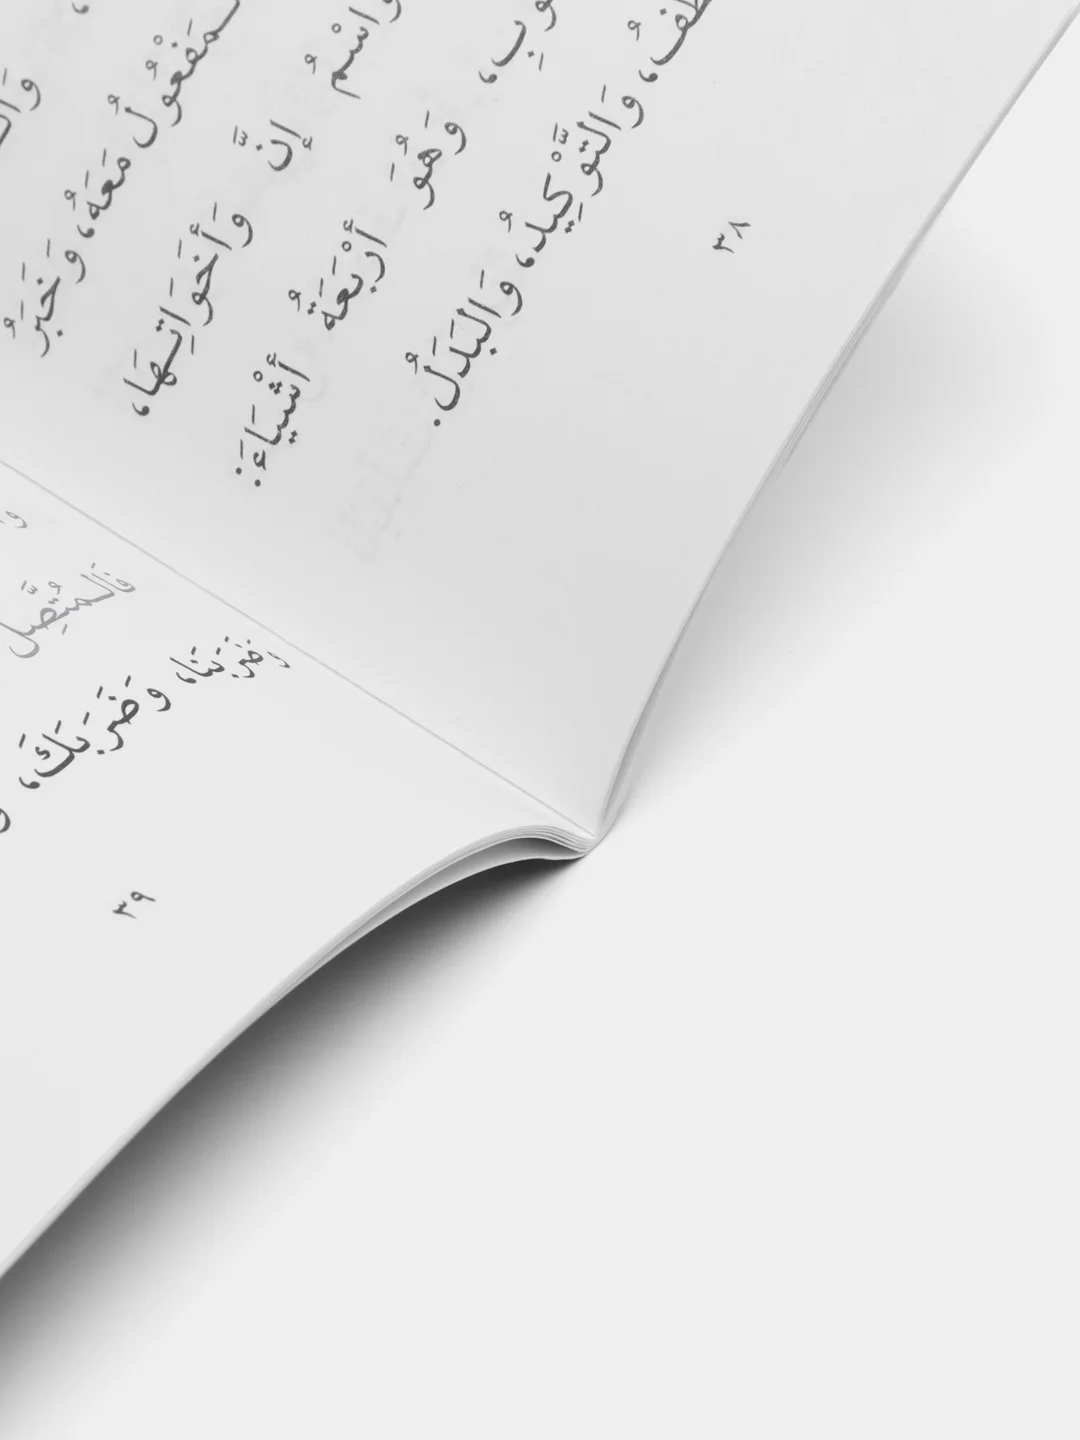 ـمَفْعُولُ مَعَهُ، وَخَبَرُ
وَاسْمُ إِنَّ وَأَخَوَاتِهَا،
وَهُوَ أَرْبَعَةُ أَشْيَاءَ:
وَالتَّوْكِيدُ، وَالْبَدَلُ.
٣٨
فَالْمُتَّصِل
وَضَرَبَنَا، وَضَرَبَكَ،
٣٩